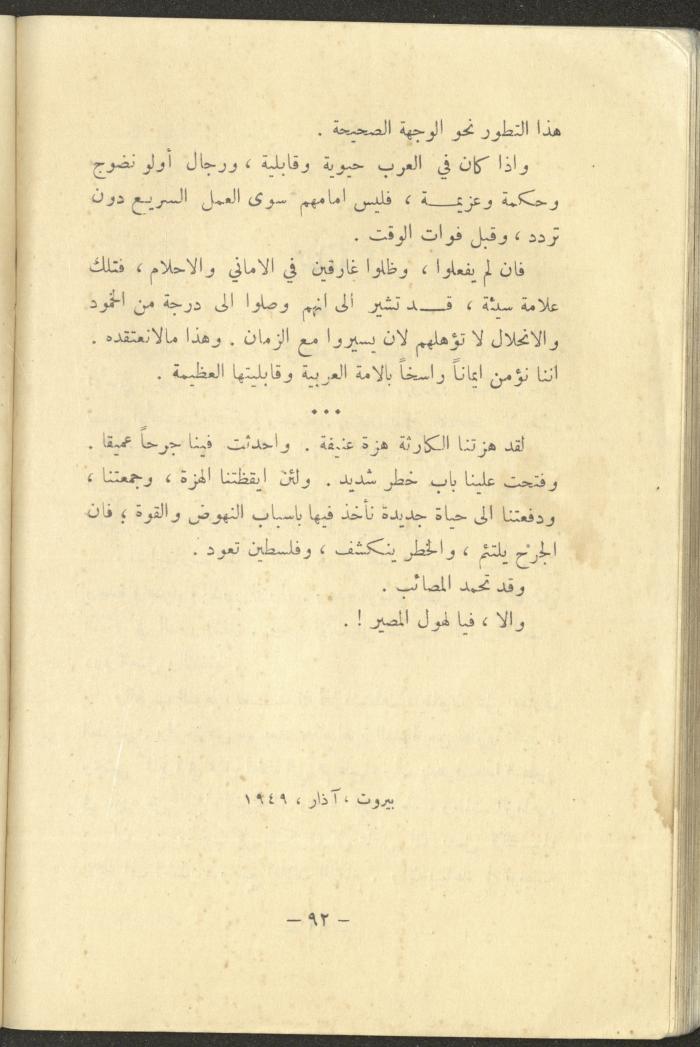 هذا التطور نحو الوجهة الصحيحة .
واذا كان في العرب حيوية وقابلية ، ورجال أولو نضوج
وحكمة وعزيمــة ، فليس امامهم سوى العمل السريع دون
تردد ، وقبل فوات الوقت .
فان لم يفعلوا ، وظلوا غارقين في الاماني والاحلام ، فتلك
علامة سيئة ، قــد تشير الى انهم وصلوا الى درجة من الخمود
والانحلال لا تؤهلهم لان يسيروا مع الزمان . وهذا مالانعتقده .
اننا نؤمن ايماناً راسخاً بالامة العربية وقابليتها العظيمة .
•••
لقد هزتنا الكارثة هزة عنيفة . واحدثت فينا جرحاً عميقا .
وفتحت علينا باب خطر شديد . ولئن ايقظتنا الهزة ، وجمعتنا ،
ودفعتنا الى حياة جديدة نأخذ فيها باسباب النهوض والقوة ؛ فان
الجرح يلتئم ، والخطر ينكشف ، وفلسطين تعود .
وقد تحمد المصائب .
والا ، فيا لهول المصير ! .
بيروت ، آذار ، ١٩٤٩
— ٩٢ —